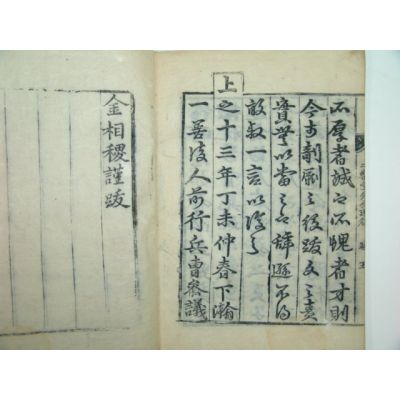 所厚者誠也所愧者才則
今剞劂之役跋文之
實無以當之辭遜不得
敢叙一言以復之
上之十三年丁未仲春下澣
一善後人前行兵曹參議
金相稷謹跋